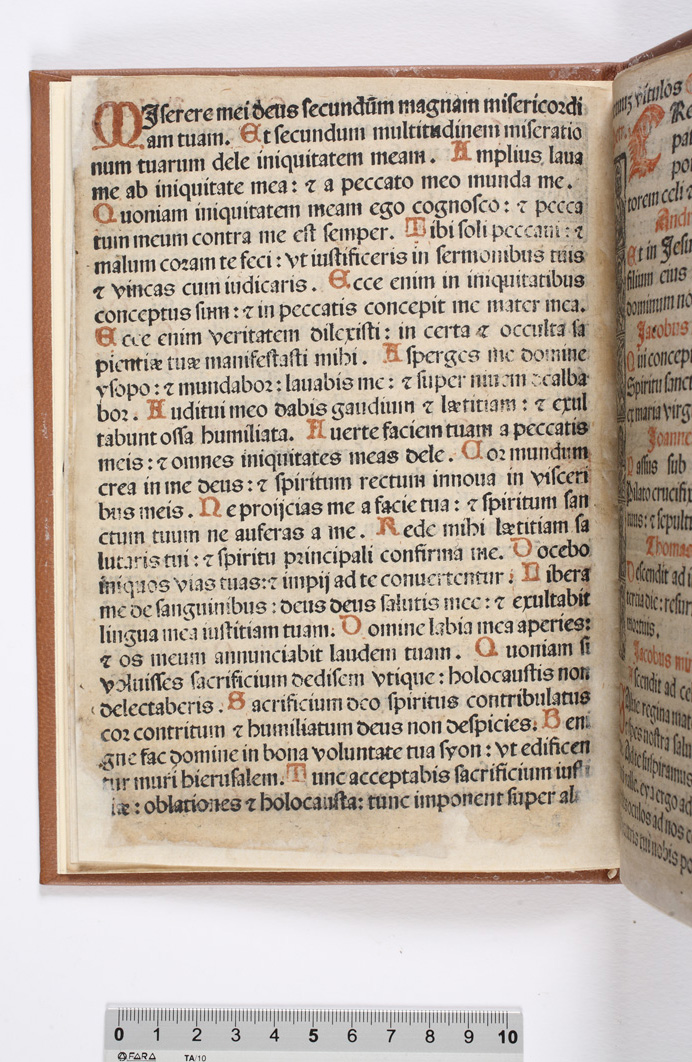 MIserere mei deus secundũm magnam misericordi
am tuam. Et secundum multitudinem miseratio
num tuarum dele iniquitatem meam. Amplius laua
me ab iniquitate mea: ⁊ a peccato meo munda me.
Quoniam iniquitatem meam ego cognosco: ⁊ pecca
tum meum contra me est semper. Tibi soli peccaui: ⁊
malum coram te feci: vt iustificeris in sermonibus tuis
⁊ vincas cum iudicaris. Ecce enim in iniquitatibus
conceptus sum: ⁊ in peccatis concepit me mater mea.
Ecce enim veritatem dilexisti: in certa ⁊ occulta sa
pientiæ tuæ manifestasti mihi. Asperges me domine
ysopo: ⁊ mundabor: lauabis me: ⁊ super niuem dealba
bor. Auditui meo dabis gaudium ⁊ lætitiam: ⁊ exul
tabunt ossa humiliata. Auerte faciem tuam a peccatis
meis: ⁊ omnes iniquitates meas dele. Cor mundum
crea in me deus: ⁊ spiritum rectum innoua in visceri
bus meis. Ne proijcias me a facie tua: ⁊ spiritum san
ctum tuum ne auferas a me. Rede mihi lætitiam sa
lutaris tui: ⁊ spiritu principali confirma me. Docebo
iniquos vias tuas: ⁊ impij ad te conuertentur: Libera
me de sanguinibus: deus deus salutis mee: ⁊ exultabit
lingua mea iustitiam tuam. Domine labia mea aperies:
⁊ os meum annunciabit laudem tuam. Quoniam si
voluisses sacrificium dedissem vtique: holocaustis non
delectaberis. Sacrificium deo spiritus contribulatus
cor contritum ⁊ humiliatum deus non despicies. Beni
gne fac domine in bona voluntate tua syon: vt edificen
tur muri hierusalem. Tunc acceptabis sacrificium iusti
iæ: oblationes ⁊ holocausta: tunc imponent super al
vitulos
Re
pa
po
torem celi ⁊
Andr
Et in Jesu
filium eius
dominum no
Jacobus
Qui concept
Spiritu sanct
ex maria virg
Joanne
Passus sub
Pilato crucifix
tuus: ⁊ sepult
Thomas
Descendit ad i
tertia die: resur
mortuis.
Jacobus mi
Ascendit ad ce
regina mat
spes nostra salu
suspiramus
valle. eya ergo ad
oculos ad nos c
tris tui nobis po
0 1 2 3 4 5 6 7 8 9 10
FARA TA/10